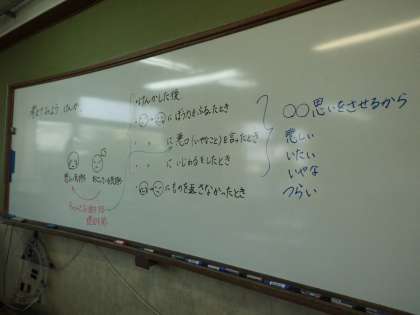 考えてみよう けんか
けんかした後
に ぼう力をふるったとき
〃 〃 に 悪口(いやなこと)を言ったとき
〃 〃 に いじわるをしたとき
に ものを返さなかったとき
○○思いをさせるから
悲しい
いたい
いやな
つらい